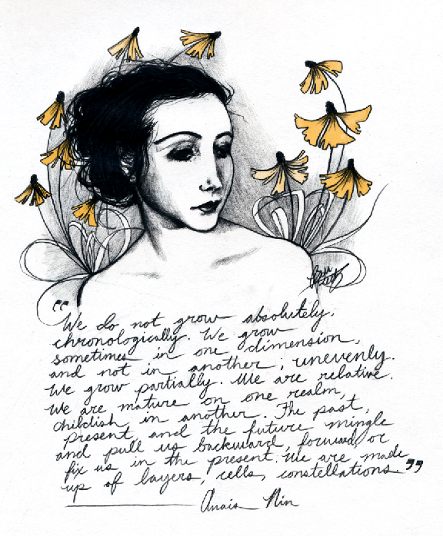 "We do not grow absolutely,
chronologically. We grow
sometimes in one dimension,
and not in another; unevenly.
We grow partially. We are relative.
We are mature on one realm,
childish in another. The past,
present, and the future mingle
and pull us backward, forward or
fix us in the present. We are made
up of layers, cells, constellations."
Anais Nin